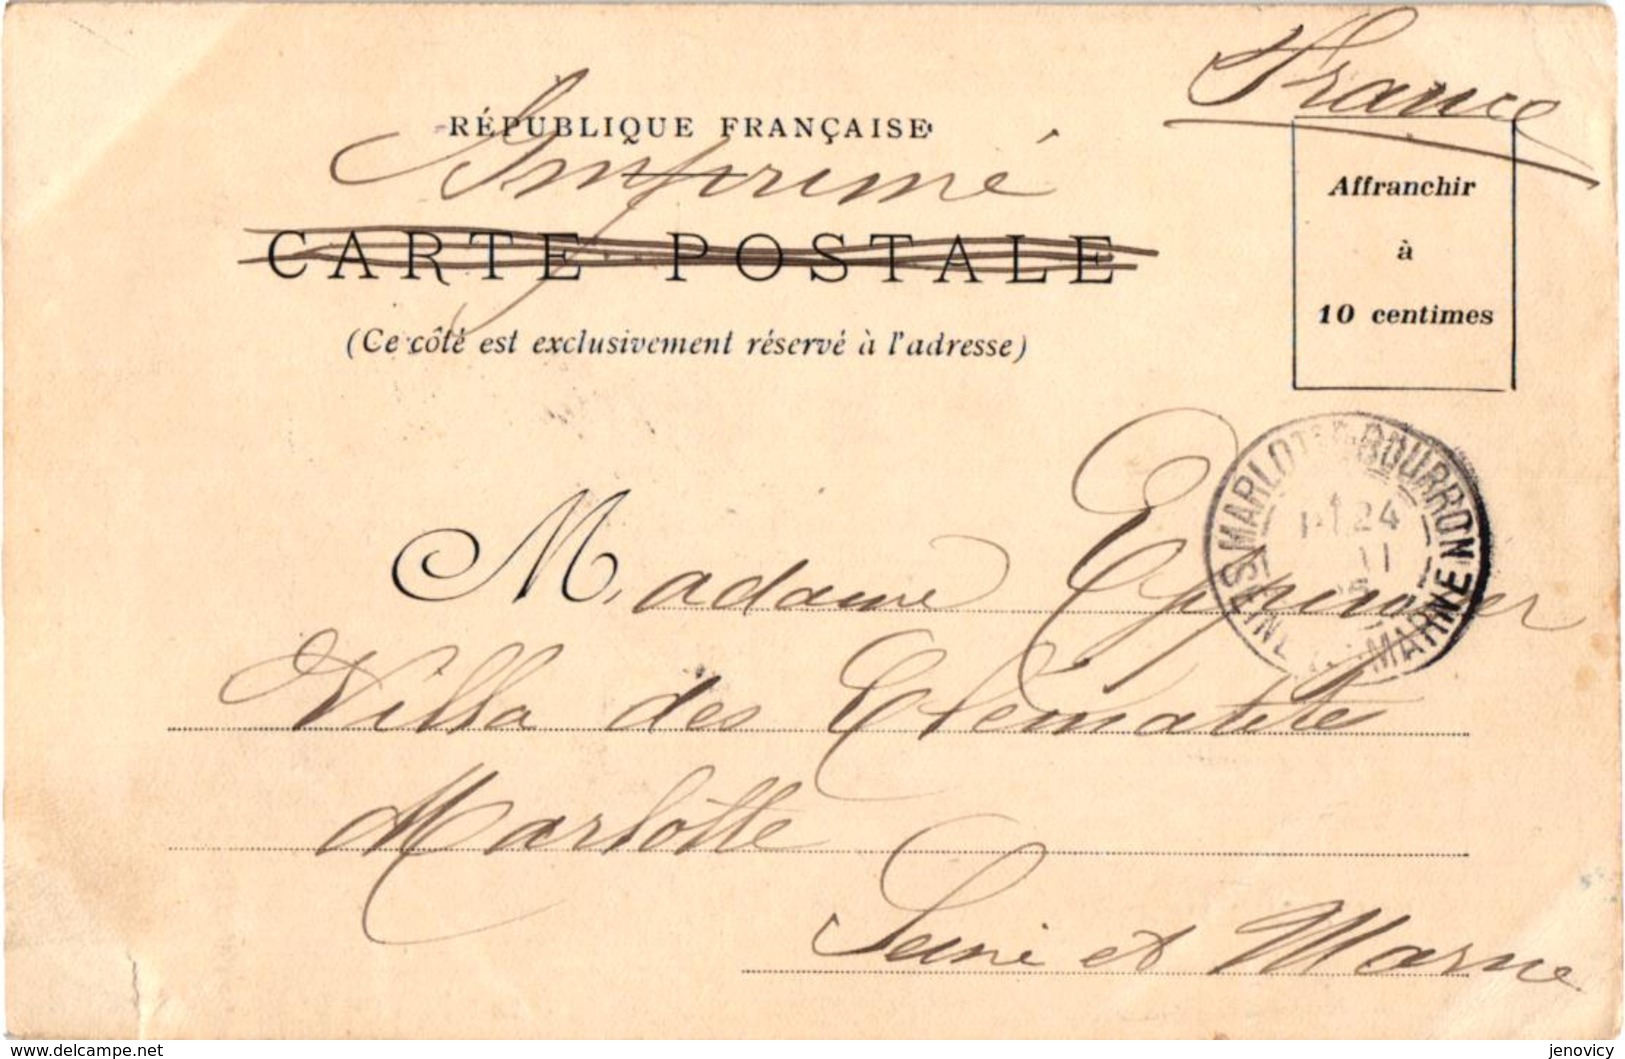 France
RÉPUBLIQUE FRANÇAISE
Imprimé
CARTE POSTALE
(Ce côté est exclusivement réservé à l'adresse)
Affranchir
à
10 centimes
MARLOTTE-BOURRON
24
11
SEINE ET MARNE
Madame Eppinger
Villa des Clématite
Marlotte
Seine et Marne
www.delcampe.net
jenovicy